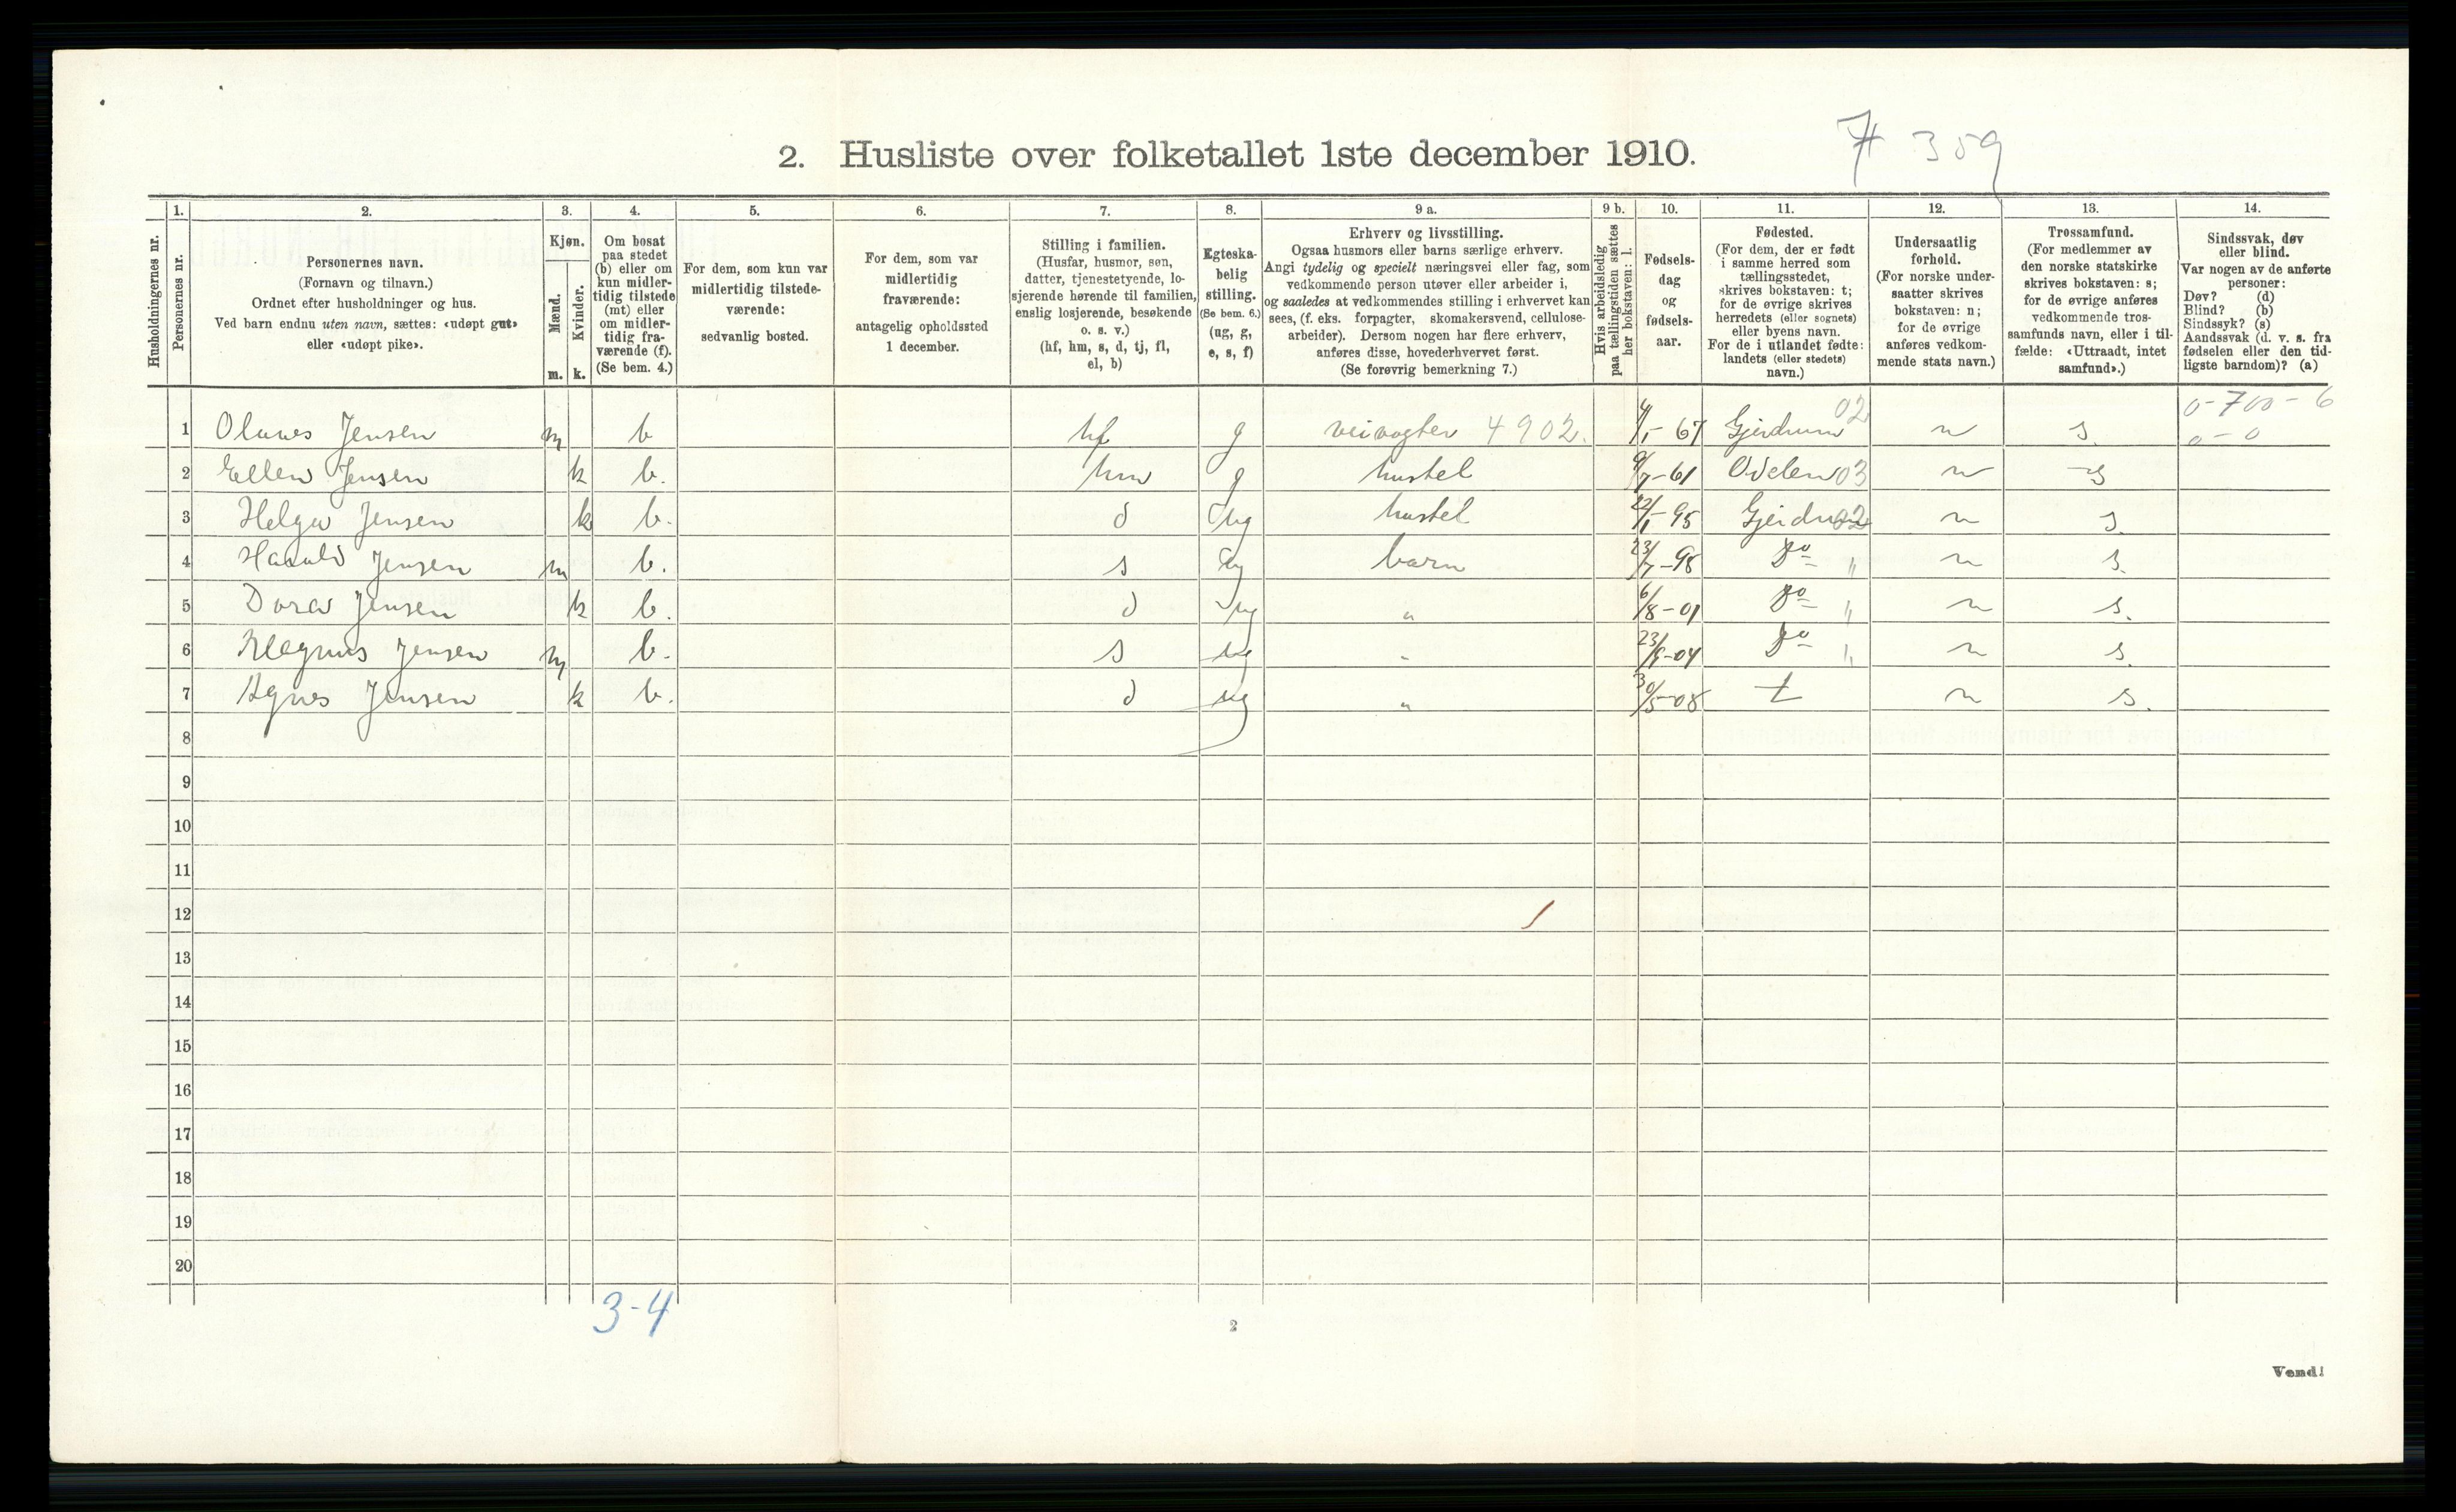 2. Husliste over folketallet 1ste december 1910.
7 359
1. 2. 3. 4. 5. 6. 7. 8. 9 a. 9 b. 10. 11. 12. 13. 14.
Husholdningernes nr.
Personernes nr.
Personernes navn.
(Fornavn og tilnavn.)
Ordnet efter husholdninger og hus.
Ved barn endnu uten navn, sættes: «udøpt gut»
eller «udøpt pike».
Kjøn.
Mænd.
Kvinder.
m. k.
Om bosat
paa stedet
(b) eller om
kun midler-
tidig tilstede
(mt) eller
om midler-
tidig fra-
værende (f).
(Se bem. 4.)
For dem, som kun var
midlertidig tilstede-
værende:
sedvanlig bosted.
For dem, som var
midlertidig
fraværende:
antagelig opholdssted
1 december.
Stilling i familien.
(Husfar, husmor, søn,
datter, tjenestetyende, lo-
sjerende hørende til familien,
enslig losjerende, besøkende
o. s. v.)
(hf, hm, s, d, tj, fl,
el, b)
Egteska-
belig
stilling.
(Se bem. 6.)
(ug, g,
e, s, f)
Erhverv og livsstilling.
Ogsaa husmors eller barns særlige erhverv.
Angi tydelig og specielt næringsvei eller fag, som
vedkommende person utøver eller arbeider i,
og saaledes at vedkommendes stilling i erhvervet kan
sees, (f. eks. forpagter, skomakersvend, cellulose-
arbeider). Dersom nogen har flere erhverv,
anføres disse, hovederhvervet først.
(Se forøvrig bemerkning 7.)
Hvis arbeidsledig
paa tællingstiden sættes
her bokstaven: l.
Fødsels-
dag
og
fødsels-
aar.
Fødested.
(For dem, der er født
i samme herred som
tællingsstedet,
skrives bokstaven: t;
for de øvrige skrives
herredets (eller sognets)
eller byens navn.
For de i utlandet fødte:
landets (eller stedets)
navn.)
Undersaatlig
forhold.
(For norske under-
saatter skrives
bokstaven: n;
for de øvrige
anføres vedkom-
mende stats navn.)
Trossamfund.
(For medlemmer av
den norske statskirke
skrives bokstaven: s;
for de øvrige anføres
vedkommende tros-
samfunds navn, eller i til-
fælde: «Uttraadt, intet
samfund».)
Sindssvak, døv
eller blind.
Var nogen av de anførte
personer:
Døv? (d)
Blind? (b)
Sindssyk? (s)
Aandssvak (d. v. s. fra
fødselen eller den tid-
ligste barndom)? (a)
1 Olaves Jensen m b hf g veivogter 4902. 4/1-67 Gjerdrum 02 n s. 0-700-6
0-0
2 Ellen Jensen k b. hm g hustel 9/7-61 Odelen 03 n s
3 Helga Jensen k b. d ug hustel 22/1-95 Gjerdrum 02 n s.
4 Harald Jensen m b. s ug barn 23/7-98 Do " n s.
5 Dora Jensen k b. d ug " 6/8-01 Do " n s.
6 Magnus Jensen m b. s ug " 23/9-04 Do " n s.
7 Agnes Jensen k b. d ug " 30/5-08 t n s.
8
9
10
11
12
13
14
15
16
17
18
19
20
3-4
2
Vend!